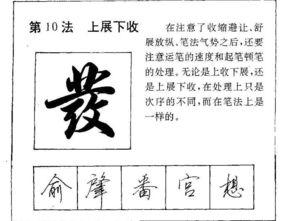 第10法 上展下收
在注意了收缩避让、舒
展放纵、笔法气势之后,还要
注意运笔的速度和起笔顿笔
的处理。无论是上收下展,还
是上展下收,在处理上只是
次序的不同,而在笔法上是
一样的。
發
俞 肇 番 宫 想